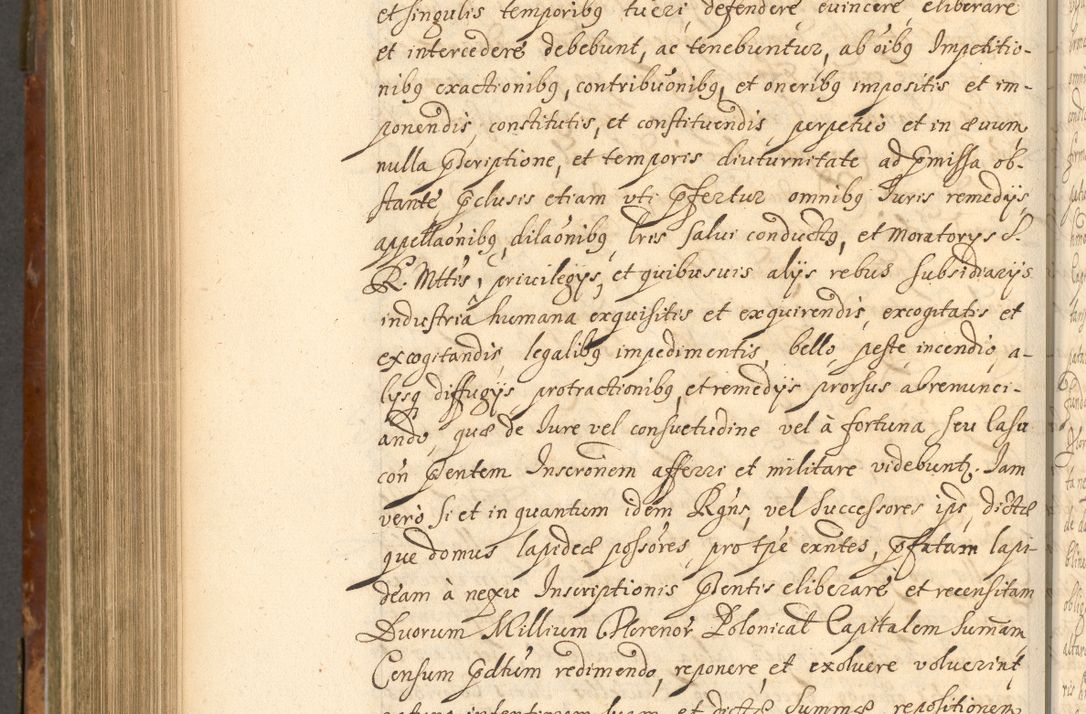 et singulis temporibꝯ tueri, defendere evincere eliberare
et intercedere debebunt, ac tenebuntur, ab oibꝯ Impetitio-
nibꝯ exactionibꝯ, contribuõnibꝯ, et oneribꝯ impositis et im-
ponendis, constitutis, et constituendis, perpetuò et in ævum
nulla p̃scriptione, et temporis diuturnitate ad p̃missa ob-
stante p̃clusis etiam uti p̃fertur omnibꝯ Iuris remedijs,
appellaõnibꝯ, dilaõnibꝯ, lris salvi conductꝯ, et Moratorys S.
R. Mttis, privilegijs, et quibusvis alijs rebus subsidiarijs
industriâ humana exquisitis et exquirendis, excogitatis et
excogitandis, legalibꝯ impedimentis, bello peste incendio, a-
lijsqꝫ diffugijs, protractionibꝯ, et remedijs prorsus abrenunci-
ando, quæ de Iure vel consuetudine vel à fortuna seu casu
con p̃sentem Inscrõnem afferri et militare videbuntꝫ. Iam
verò si et in quantum idem Rgñs, vel Successores ipς, dictæ
que domus lapideæ possõres, pro tp̃e exñtes, p̃fatam lapi-
deam à nexu Inscriptionis p̃sentis eliberare et recensitam
Duorum Millium Florenoꝝ Polonical Capitalem Sum̃am
Censum p̃dtum redimendo, reponere, et exoluere voluerint
intentionem suam et dictæ Summæ repositionem